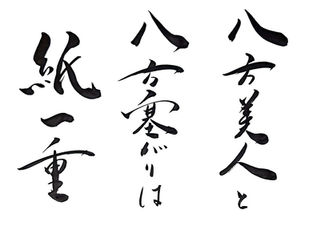 八方美人と
八方塞がりは
紙一重